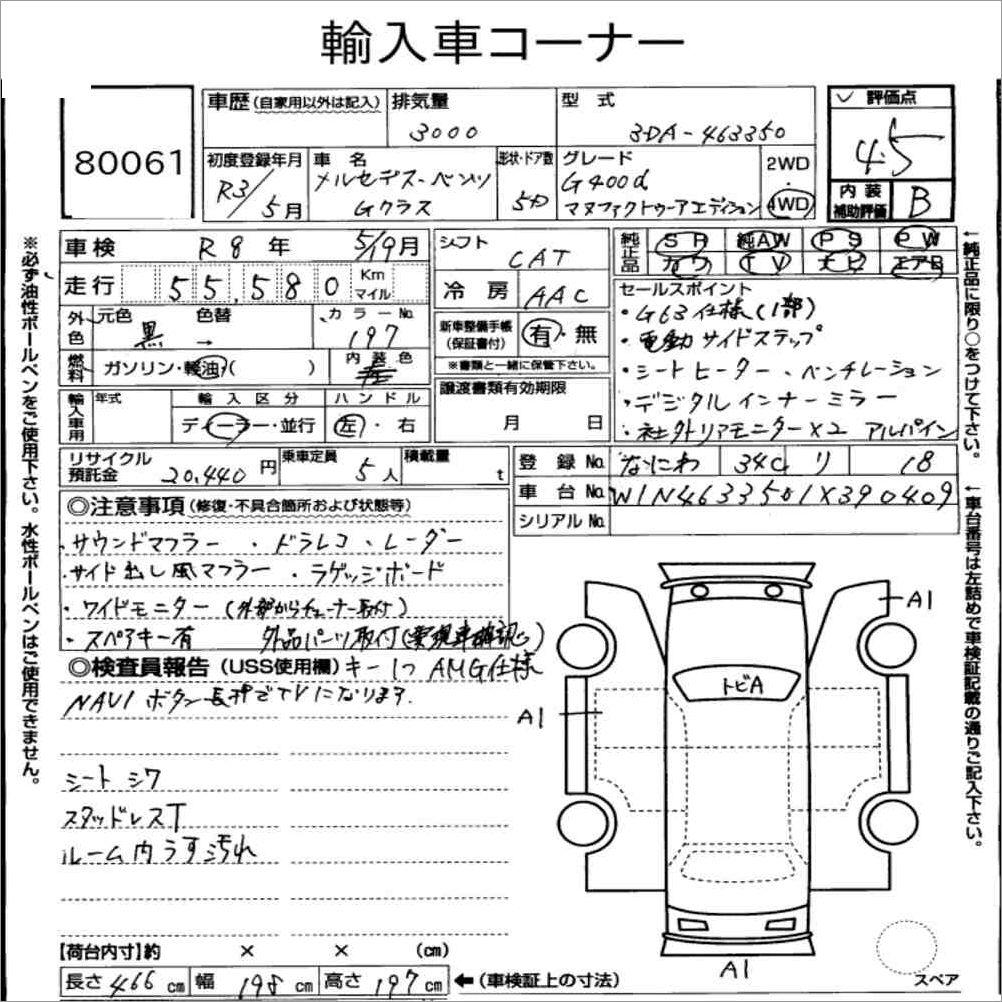 輸入車コーナー
80061
車歴(自家用以外は記入) 排気量 3000
型式 3DA-463350
✓ 評価点 4.5
初度登録年月 R3/5月
車名 メルセデス・ベンツ Gクラス
形状・ドア数 5D
グレード G400d
マヌファクトゥーアエディション
2WD・4WD
内装補助評価 B
車検 R8年 5/19月
走行 55,580 Km マイル
外色 元色 黒 色替 → カラーNo. 197
燃料 ガソリン・軽油( ) 内装色
輸入車用 年式 輸入区分 ディーラー・並行 ハンドル 左・右
リサイクル預託金 20,440円 乗車定員 5人 積載量 t
シフト CAT
冷房 AAC
新車整備手帳(保証書付) 有・無
※書類と一緒に保管下さい。
譲渡書類有効期限 月 日
純正品 SR 純AW PS PW
カワ TV ナビ エアB
セールスポイント
・G63仕様(1部)
・電動サイドステップ
・シートヒーター・ベンチレーション
・デジタルインナーミラー
・社外リアモニター×2 アルパイン
登録No. なにわ 340 リ 18
車台No. W1N4633501X390409
シリアルNo.
◎注意事項(修復・不具合箇所および状態等)
・サウンドマフラー ・ドラレコ・レーダー
・サイド出し風マフラー ・ラゲッジボード
・ワイドモニター(外部からチューナー取付)
・スペアキー有 外品パーツ取付(要現車確認)
◎検査員報告(USS使用欄) キー1つ AMG仕様
NAVIボタン長押でTVになります.
シートシワ
スタッドレスT
ルーム内うす汚れ
A1
トビA
A1
A1
スペア
【荷台内寸】約 × × (cm)
長さ 466 cm 幅 198 cm 高さ 197 cm ←(車検証上の寸法)
※必ず油性ボールペンをご使用下さい。水性ボールペンはご使用できません。
←純正品に限り○をつけて下さい。
←車台番号は左詰めで車検証記載の通りご記入下さい。